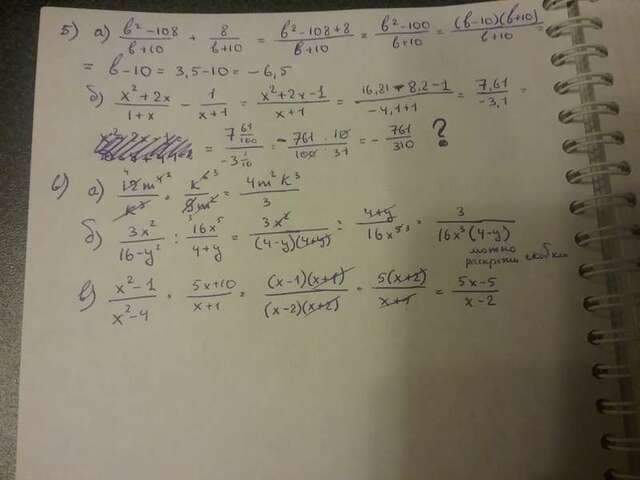 5) а) (b²-108)/(b+10) + 8/(b+10) = (b²-108+8)/(b+10) = (b²-100)/(b+10) = ((b-10)(b+10))/(b+10) =
= b-10 = 3,5-10 = -6,5
б) (x²+2x)/(1+x) - 1/(x+1) = (x²+2x-1)/(x+1) = (16,81-8,2-1)/(-4,1+1) = 7,61/(-3,1) =
= (7 61/100)/(-3 1/10) = - (761 · 10)/(100 · 31) = - 761/310 ?
а) (12m⁴)/k³ · k⁶/(9m²) = (4m²k³)/3
б) 3x²/(16-y²) : 16x⁵/(4+y) = 3x²/((4-y)(4+y)) · (4+y)/(16x⁵) = 3/(16x³(4-y))
можно
раскрыть скобки
в) (x²-1)/(x²-4) · (5x+10)/(x+1) = ((x-1)(x+1))/((x-2)(x+2)) · (5(x+2))/(x+1) = (5x-5)/(x-2)